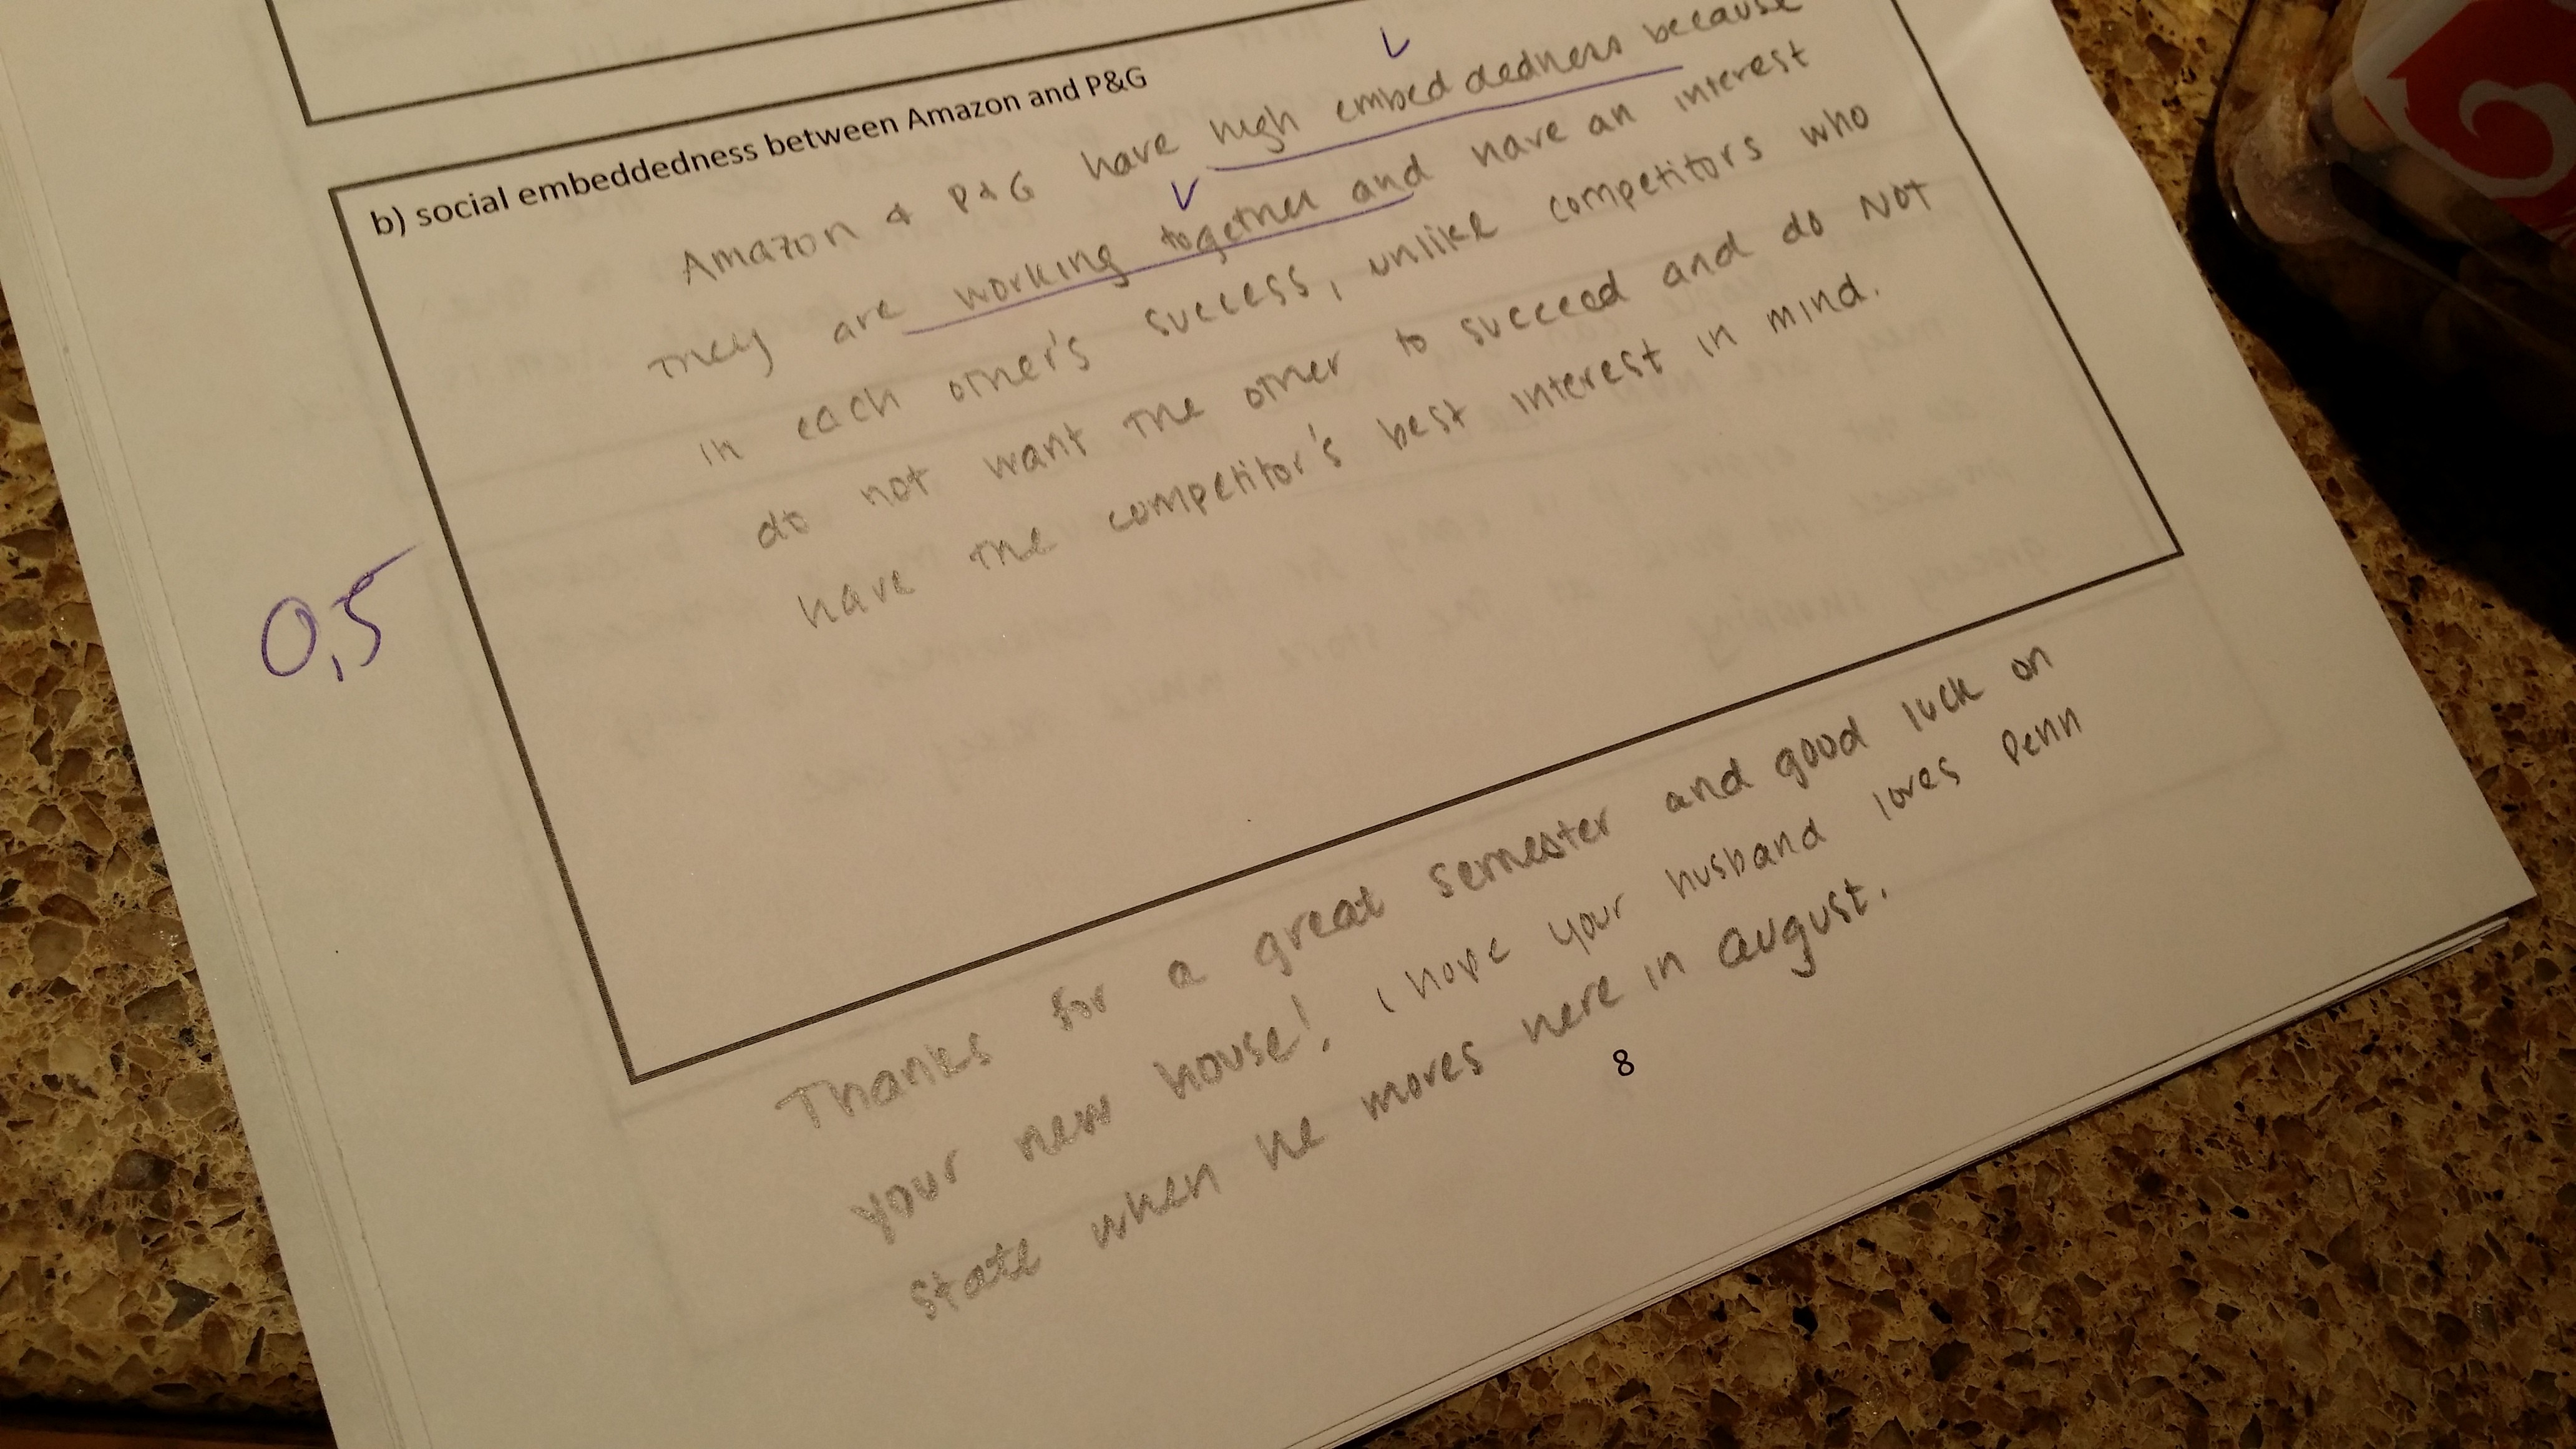 b) social embeddedness between Amazon and P&G
Amazon & P&G have high embeddedness because
They are working together and have an interest
in each other's success, unlike competitors who
do not want the other to succeed and do NOT
have the competitor's best interest in mind.
0,5
Thanks for a great semester and good luck on
your new house! I hope your husband loves Penn
State when he moves here in august.
8